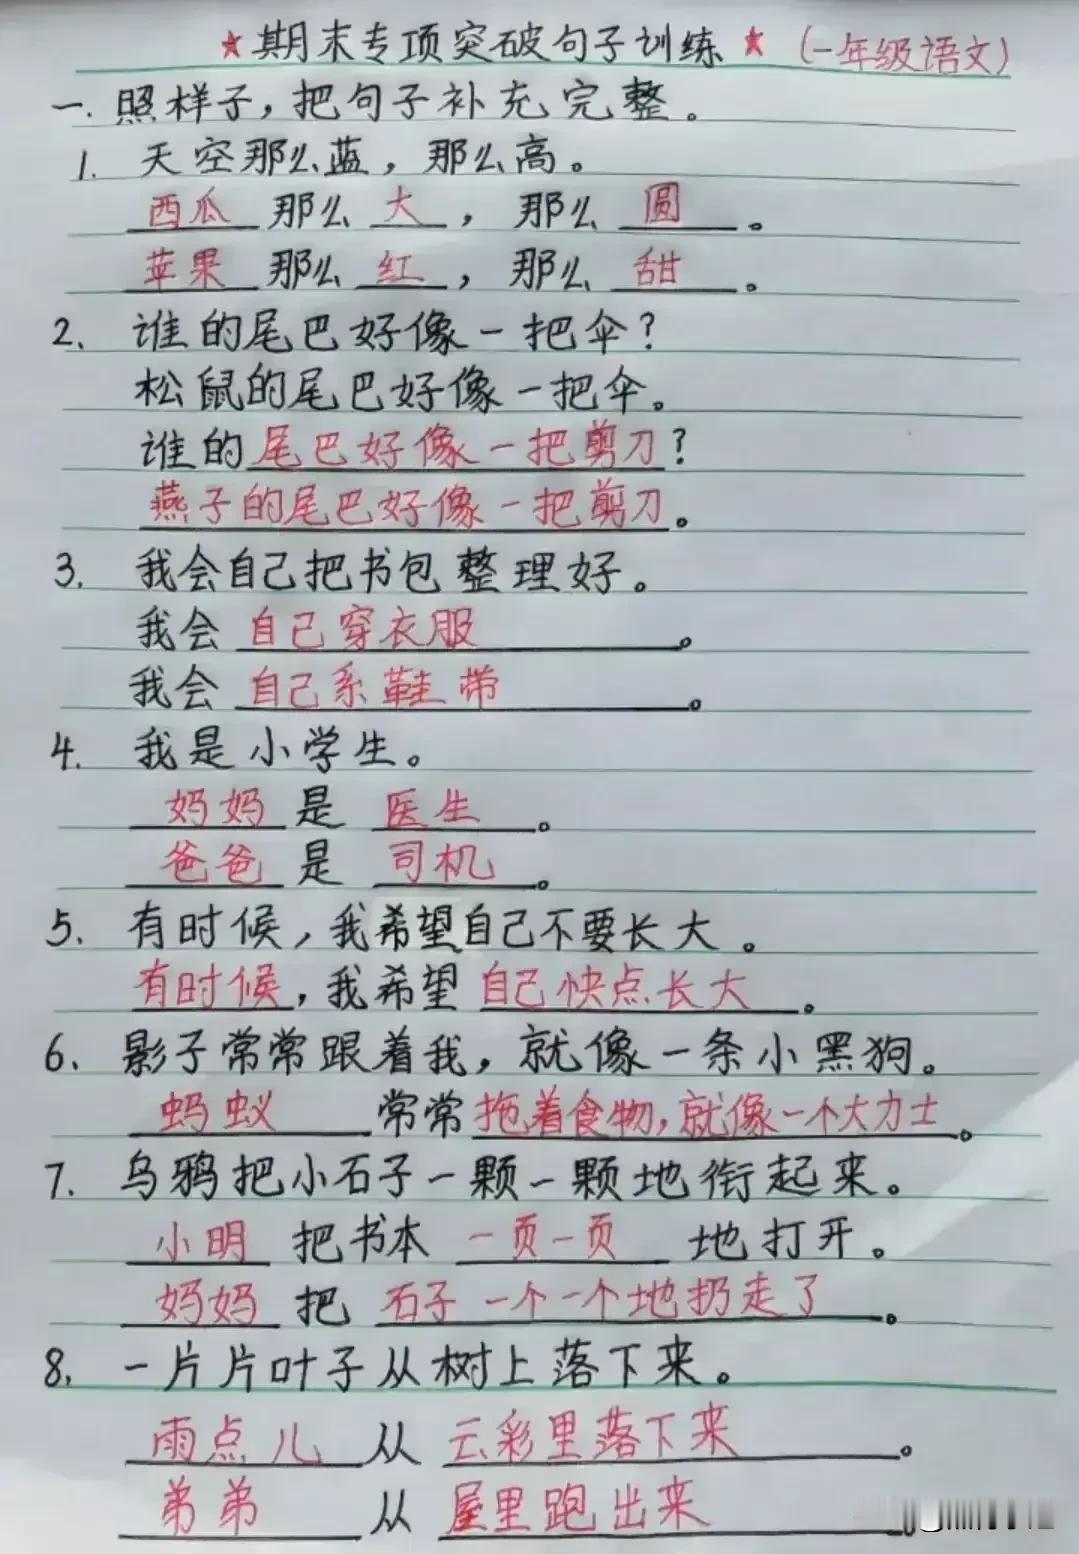 ★期末专项突破句子训练★(一年级语文)
一.照样子,把句子补充完整。
1. 天空那么蓝,那么高。
西瓜那么大,那么圆。
苹果那么红,那么甜。
2. 谁的尾巴好像一把伞?
松鼠的尾巴好像一把伞。
谁的尾巴好像一把剪刀?
燕子的尾巴好像一把剪刀。
3. 我会自己把书包整理好。
我会自己穿衣服。
我会自己系鞋带。
4. 我是小学生。
妈妈是医生。
爸爸是司机。
5. 有时候,我希望自己不要长大。
有时候,我希望自己快点长大。
6. 影子常常跟着我,就像一条小黑狗。
蚂蚁常常拖着食物,就像一个大力士。
7. 乌鸦把小石子一颗一颗地衔起来。
小明把书本一页一页地打开。
妈妈把石子一个一个地扔走了。
8. 一片片叶子从树上落下来。
雨点儿从云彩里落下来。
弟弟从屋里跑出来。